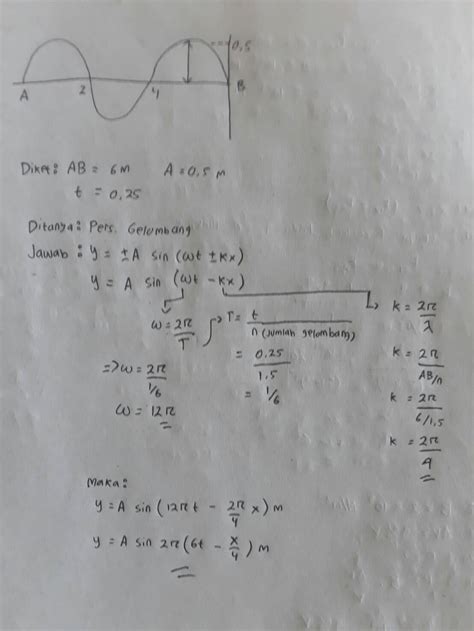 0,5
A 2 4 B
Diket: AB = 6 M A = 0,5 M
t = 0,25
Ditanya: Pers. Gelombang
Jawab: y = ±A sin (ωt ± kx)
y = A sin (ωt - kx)
ω = 2π/T T = t/n (jumlah gelombang) k = 2π/λ
= 0,25/1,5 k = 2π/AB/n
=> ω = 2π/1/6 = 1/6 k = 2π/6/1,5
ω = 12π k = 2π/4
Maka:
y = A sin (12πt - 2π/4 x) M
y = A sin 2π (6t - x/4) M